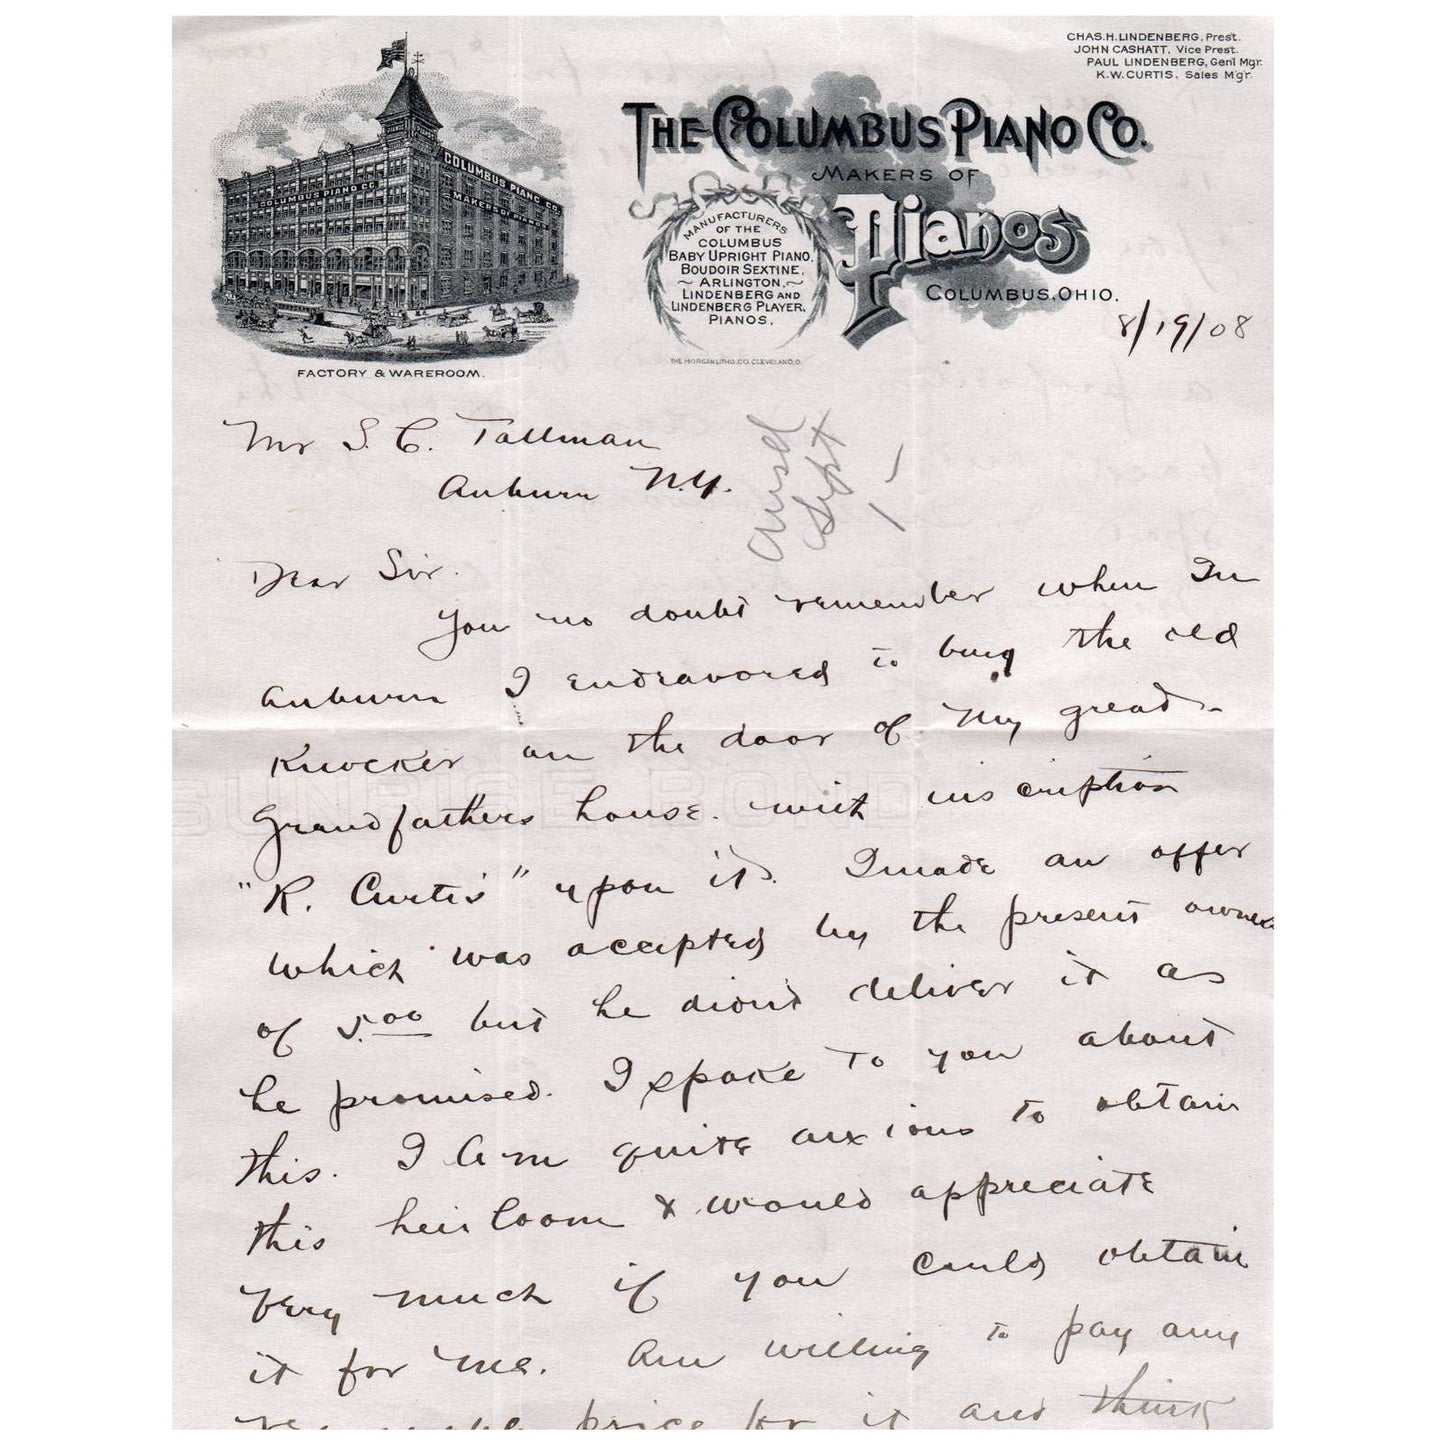 CHAS.H.LINDENBERG, Prest.
JOHN CASHATT, Vice Prest.
PAUL LINDENBERG, Gen'l Mgr.
K.W.CURTIS, Sales M'g'r.
THE COLUMBUS PIANO CO.
MAKERS OF
Pianos
COLUMBUS, OHIO.
COLUMBUS PIANO CO.
COLUMBUS PIANO CO.
MAKERS OF PIANOS
MANUFACTURERS
OF THE
COLUMBUS
BABY UPRIGHT PIANO,
BOUDOIR SEXTINE,
~ ARLINGTON, ~
LINDENBERG AND
LINDENBERG PLAYER.
PIANOS.
THE MORGAN LITHO. CO. CLEVELAND, O.
FACTORY & WAREROOM.
8/19/08
Mr S. C. Tallman
Auburn N.Y.
Sept
1-
Dear Sir.
You no doubt remember when In
Auburn I endeavored to buy the old
Knocker on the door of My great-
Grandfathers house. with inscription
"R. Curtis" upon it. I made an offer
which was accepted by the present owner
of 5.00 but he didn't deliver it as
he promised. I spoke to you about
this. I am quite anxious to obtain
this heirloom & would appreciate
very much if you could obtain
it for me. Am willing to pay any
price for it and think
SUNRISE BOND